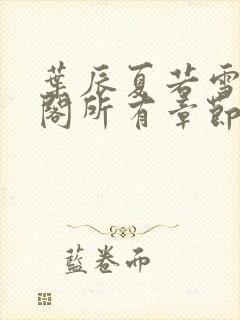 葉辰夏若雪
閣所有章節
藍卷而